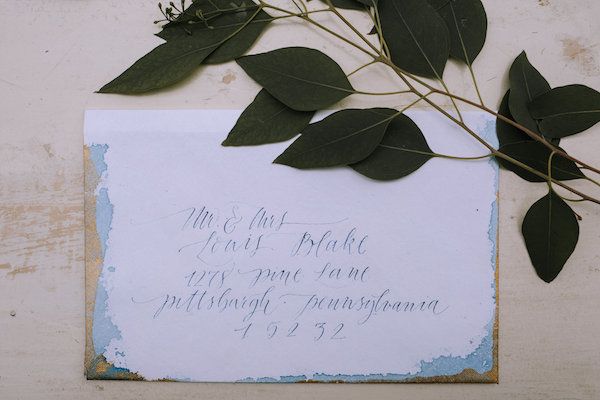 Mr. & Mrs
Louis Blake
1278 pine Lane
pittsburgh - pennsylvania
19232